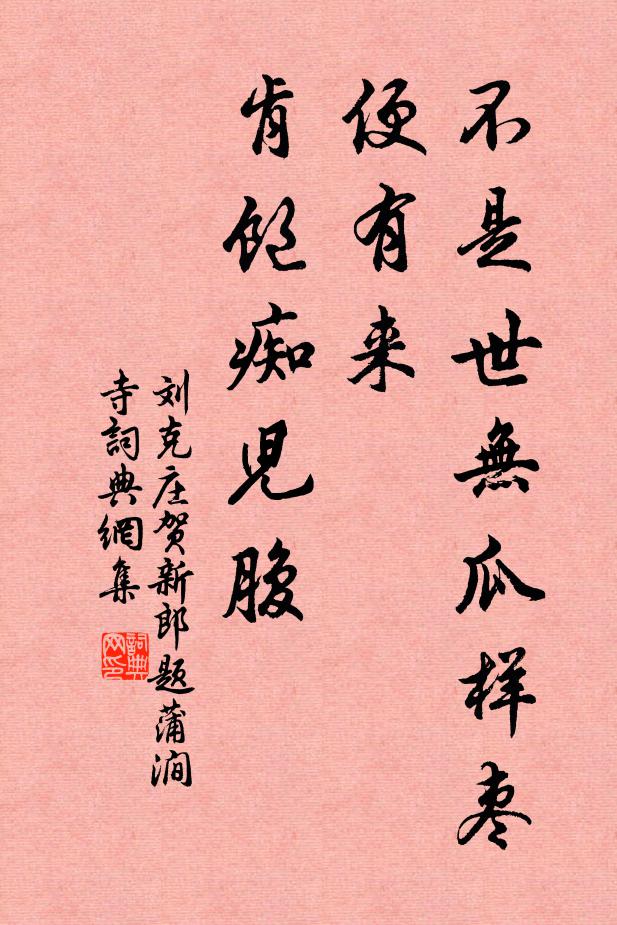 不是世無瓜样枣
便有来
肯饱痴兒腹
刘克庄贺新郎题蒲涧
寺詞典網集
詞典
网印